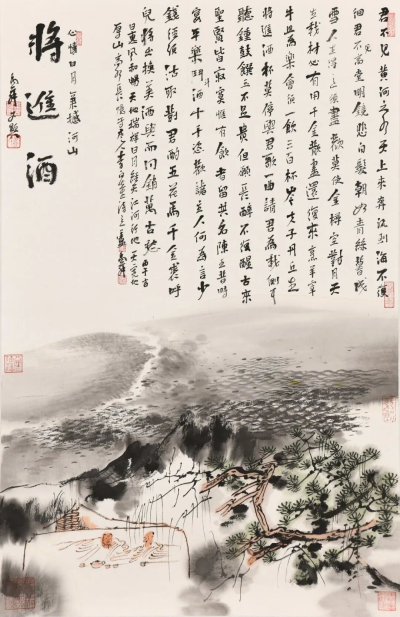 君不見黃河之水天上來奔流到海不復
回君不見高堂明鏡悲白髮朝如青絲暮成
雪人生得意須盡歡莫使金樽空對月天
生我材必有用千金散盡還復來烹羊宰
牛且為樂會須一飲三百杯岑夫子丹丘生
將進酒杯莫停與君歌一曲請君為我側耳
聽鐘鼓饌玉不足貴但願長醉不復醒古來
聖賢皆寂寞惟有飲者留其名陳王昔時
宴平樂斗酒十千恣歡謔主人何為言少
錢徑須沽取對君酌五花馬千金裘呼
兒將出換美酒與爾同銷萬古愁
心懷日月 氣撼河山
將進酒